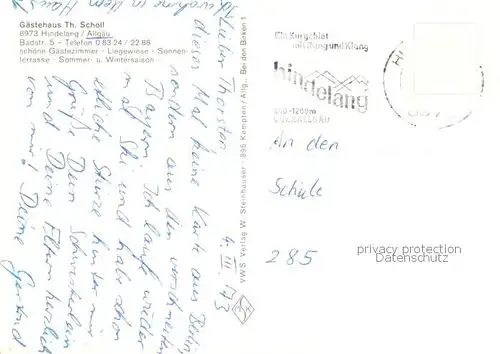 Gästehaus Th. Scholl
8973 Hindelang / Allgäu
Badstr. 5 - Telefon 0 83 24 / 22 88
schöne Gästezimmer - Liegewiese - Sonnen-
terrasse - Sommer- u. Wintersaison
Ich wohne in dem Haus
4. III. 73
Lieber Thorsten
dieses Mal keine Karte aus Berlin,
sondern aus dem verschneiten
Bayern. Ich laufe wieder
mal Ski und habe schon
etliche Stürze hinter mir
Grüß Dein Schwesterlein
und Deine Eltern herzlich
von mir! Deine Gertrud
VWS Verlag W. Steinhauser - 896 Kempten / Allg., Bei den Birken 1
Ein Kurgebiet
mit Rang und Klang
hindelang
850-1200m
OBERALLGÄU
An den
Schule
285
privacy protection
Datenschutz